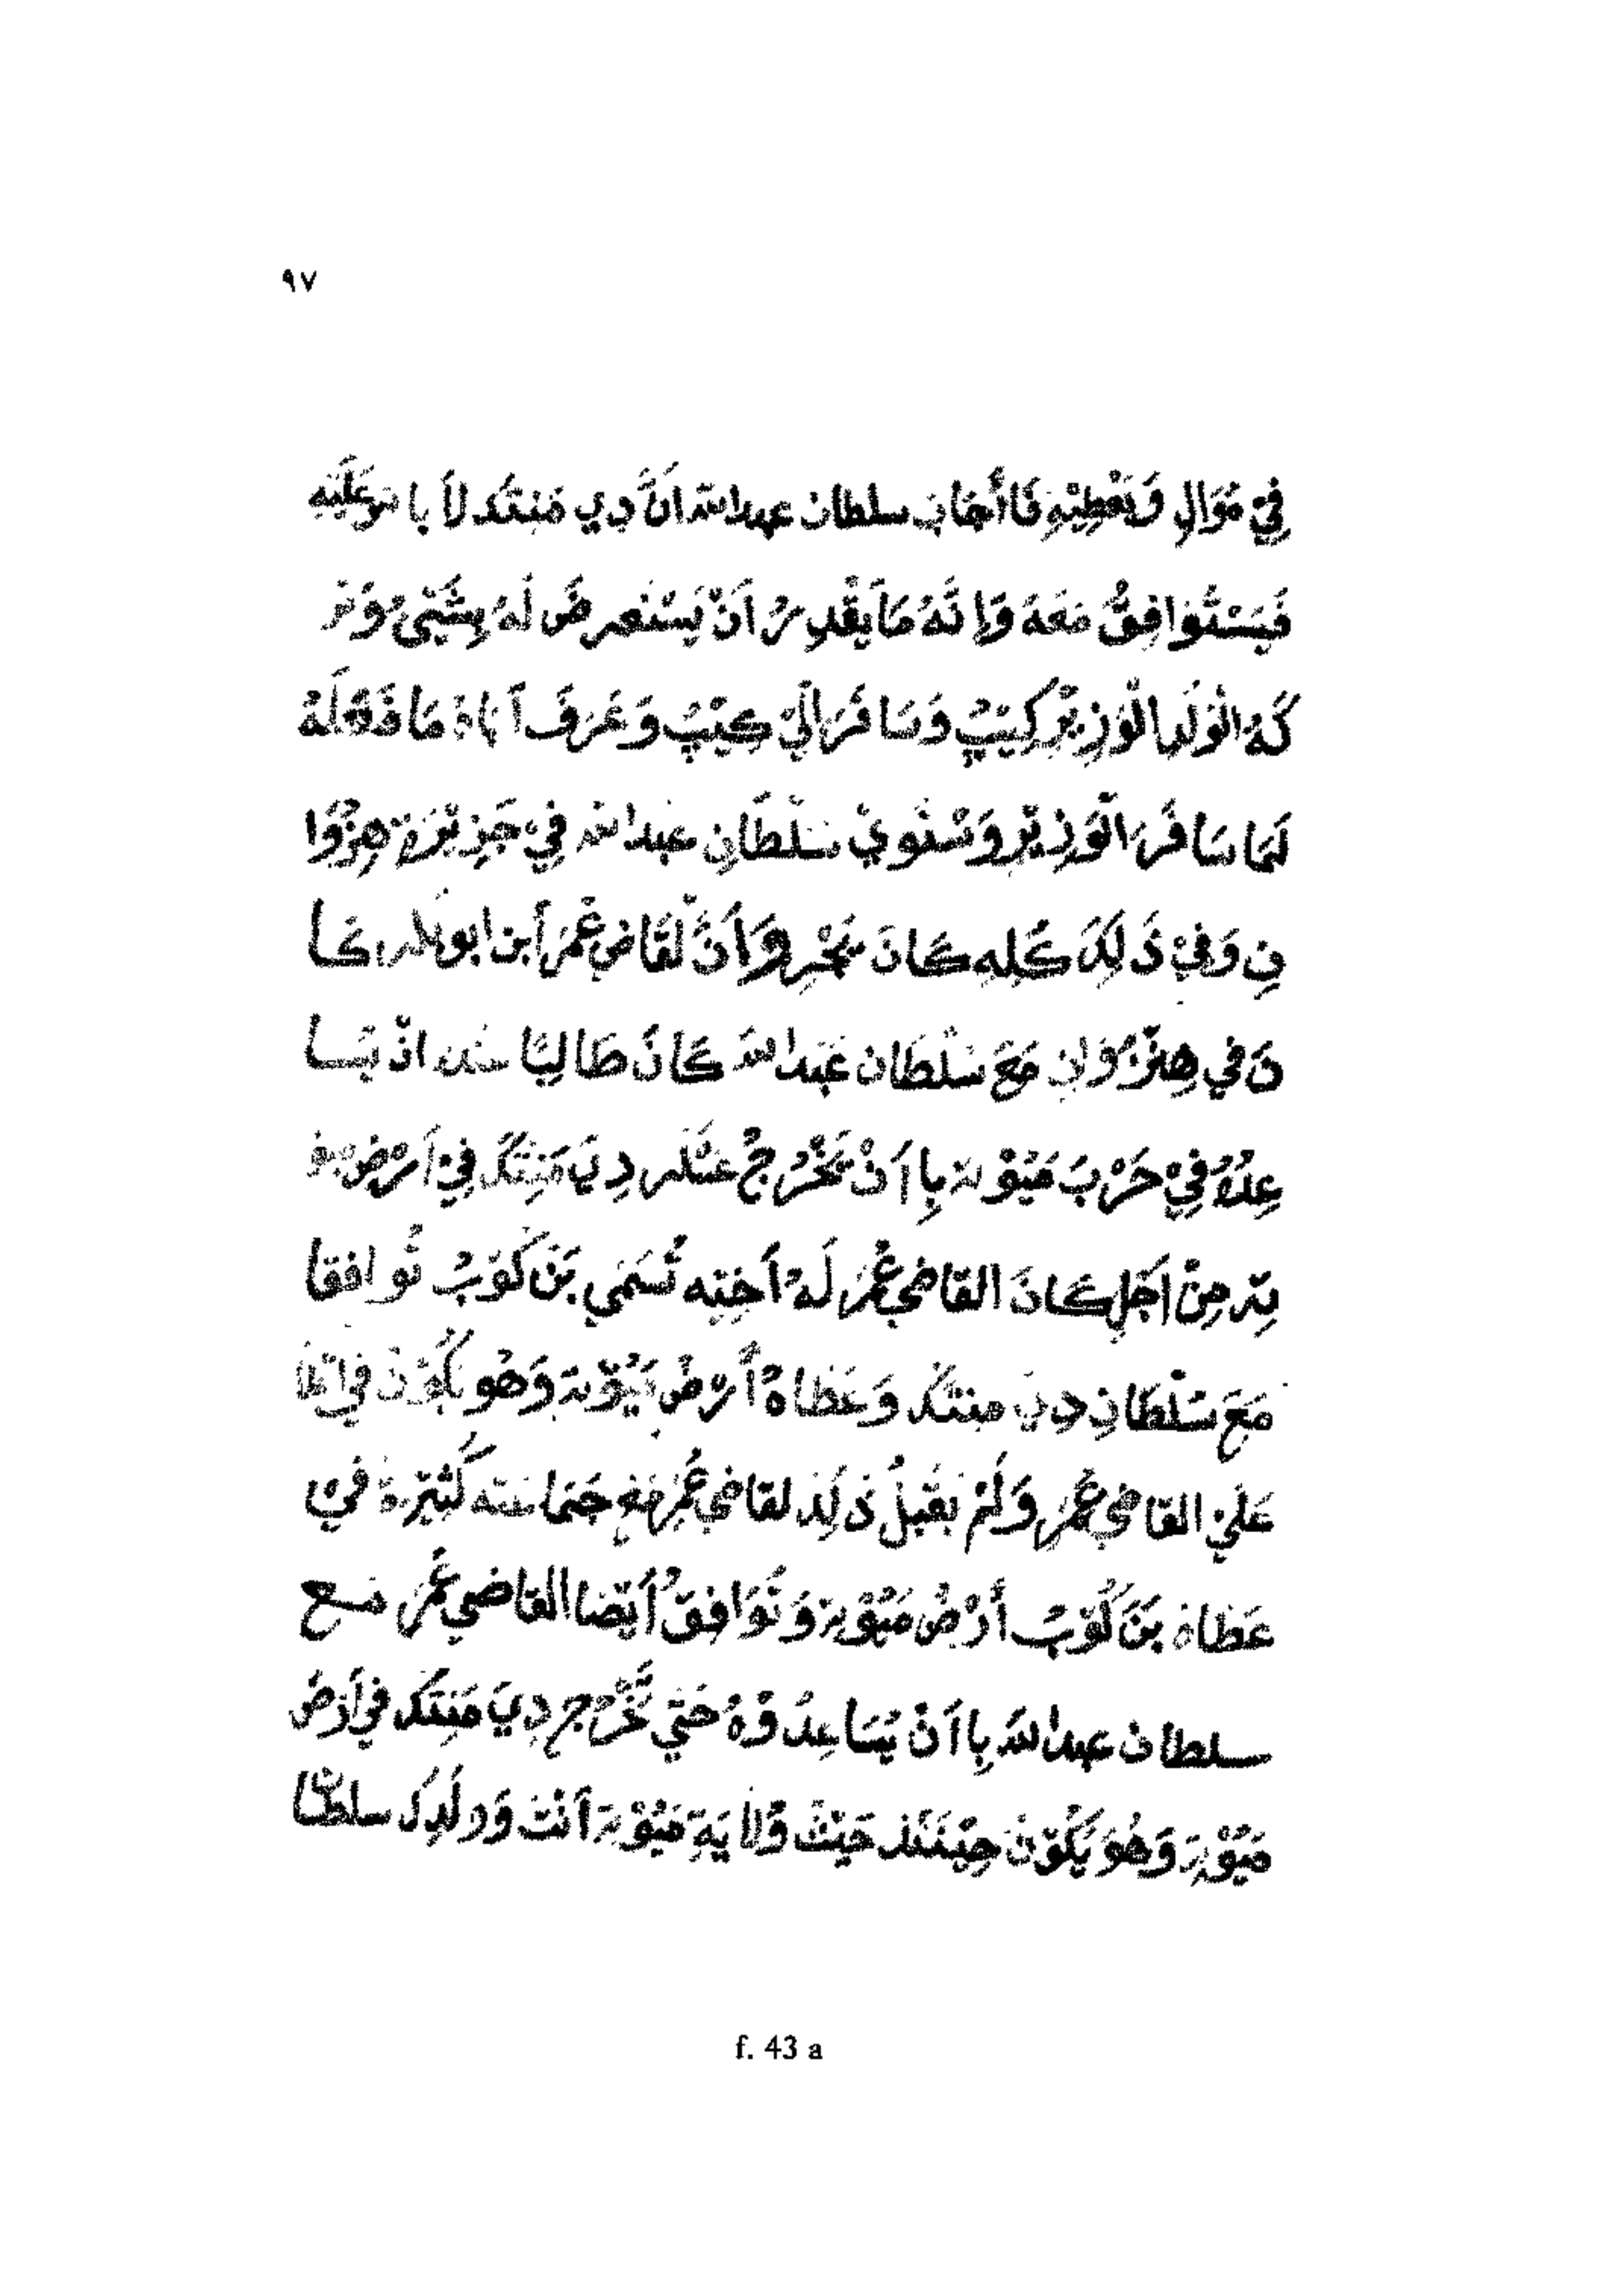 ٩٧
فِيْ مُوَالِ وَيُعْطِيْهِ فَاأَجَابَ سلطان عبدالله اَنَّ دِي مَنِتَكَد لاَ يا مَوعَلَيْهِ
فَيَسْتُوَافِقُ مَعَهُ وَاِنَّهُ مَا يَقْدِرُ اَنْ يَسْتَعرِضَ لَهُ بِشَيْئٍ وَتَرَ
كَهُ الْوَلَدِ الْوَزِيْرِ كِيْبُ وَسَافَرَ اِلَيْ كِيْبُ وَعَرَفَ اَبَاهُ مَا فَعَلَهُ
لَمَا سَافَرَ الْوَزِيْرِ وَسْتَوِيْ سَلْطَانِ عَبدالله فِيْ جَزِيْرَةِ هِنْزُوَا
نِ وَفِيْ ذَلِكَ كُلِهِ كَانَ يَجْرِ وَاَنَّ لْقَاضِي عُمَرَ اَبن ابو بكر كا
نَ فِي هِنْزُوَانِ مَعَ سَلْطَان عَبْدالله كَانَ طَالِبًا عنده اَنْ يُسا
عِدُهُ فِيْ حَرْبَ مَيُوْتة بِااَنْ يَخْرُجُ عَسْكَر دِيَ مَنِتَكَد فِيْ اَرْضِ مَيُو
تة مِنْ اَجَلِ كَانَ القاضِي عُمَر لَهُ اَخِته تُسَمَي بَنَ كُوْبُ تُوافقا
مَعَ سَلْطَانِ دِيَ مَنِتَكَد وَعَطَاهُ اَرْضُ مَيُوْتة وَهُو يَكُوْنَ فِي
عَلَيْ القاضِي عُمَر وَلَمْ يَقْبِلُ ذَلِكَ لقاضِي عُمَر مَعِ جَمَاعَته كَثِيْرَة فِيْ
عَطَاهُ بَنَ كُوْبُ أَرْضُ مَيُوْتة وَتُوَافِقُ اَيْضا القاضي عُمَرَ مَع
سلطان عبدالله بِااَنْ يُسَاعِدُوْهُ حَتِّي تَخْرُج دِيَ مَنِتَكَد فِي اَرْضَ
مَيُوْتة وَهُوَ يَكُوْنَ حِيْنَئَذ حَيْثَ وَلاَيَةِ مَيُوْتة اَنْتَ وَوِلَدِكَ سلطان
f. 43 a